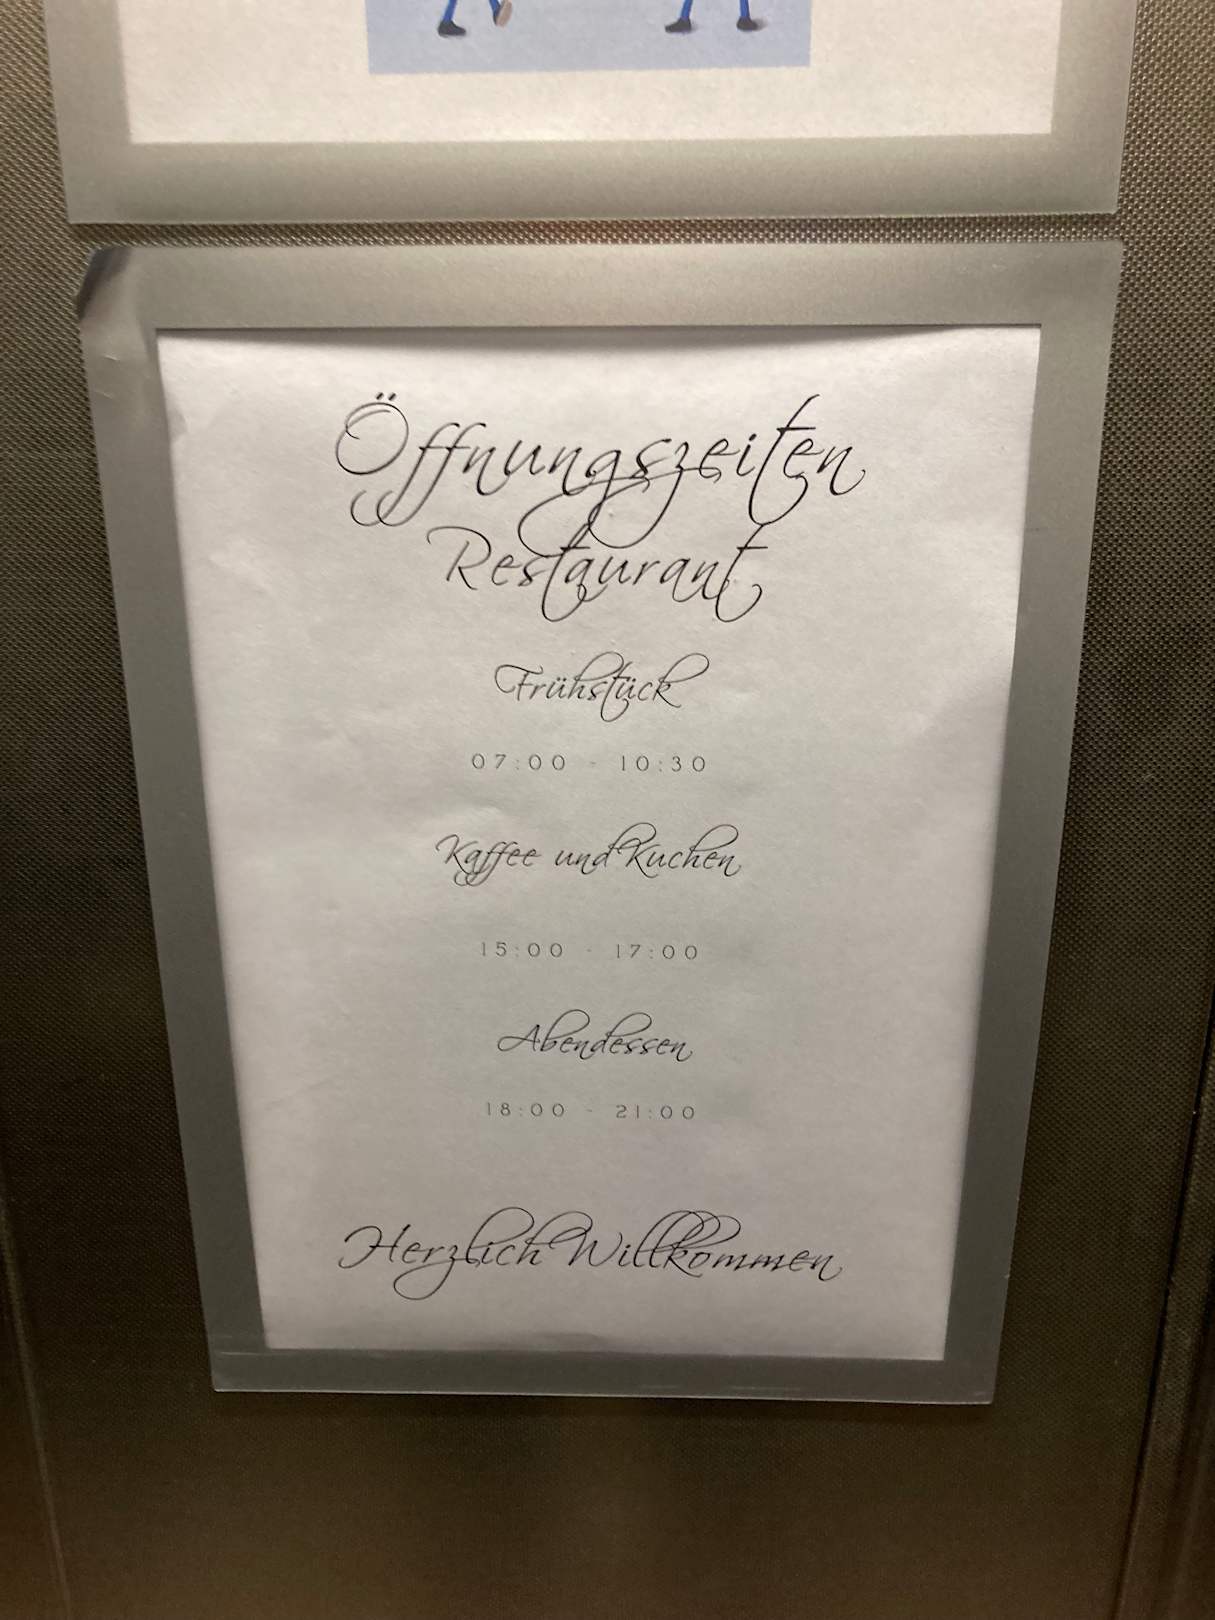 Öffnungszeiten
Restaurant
Frühstück
07:00 - 10:30
Kaffee und Kuchen
15:00 - 17:00
Abendessen
18:00 - 21:00
Herzlich Willkommen